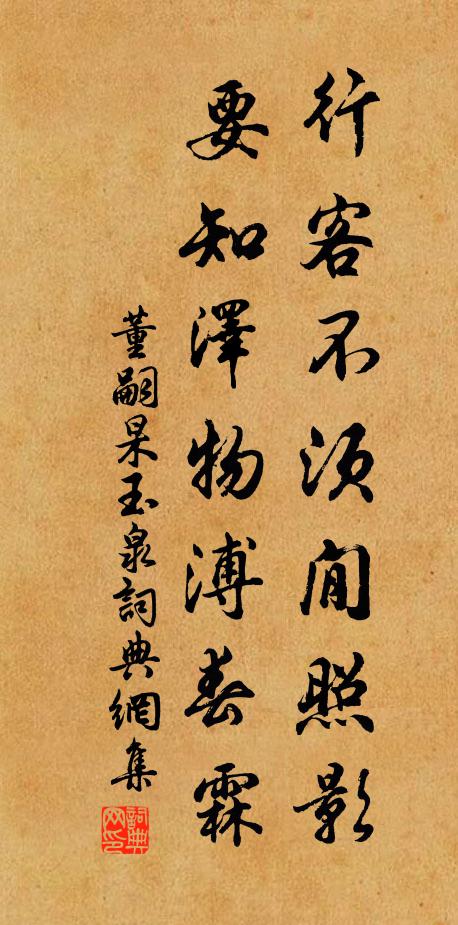 行客不須閒照影
要知澤物溥春霖
董嗣杲玉泉詞典網集
詞典网印